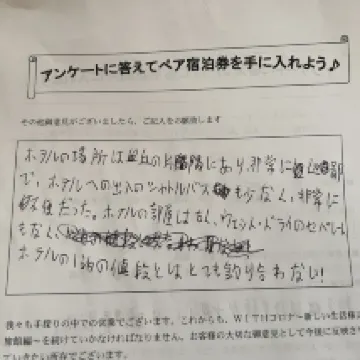 アンケートに答えてペア宿泊券を手に入れよう♪
その他御意見がございましたら、ご記入をお願致します
ホテルの場所は の片隅にあり、非常に 部
で、ホテルへの出入のシャトルバスも少なく、非常に
だった。ホテルの部屋は 、ウェット・ドライのセパレート
もなく、
ホテルの1泊の値段とはとても釣り合わない!
我々も手探りの中での営業でございます。これからも、WITHコロナ~新しい生活様式
旅館編~を続けていかなければなりません。お客様の大切な御意見として今後に反映さ
ていきたい所存でございます。